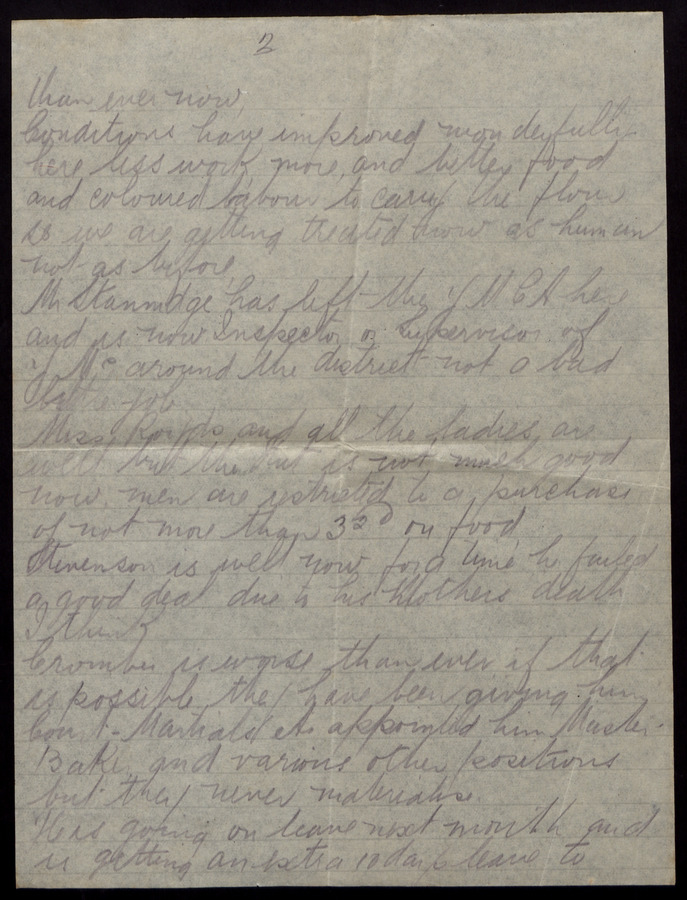 2
than ever now,
Conditions have improved wonderfully
here less work more, and better food
and coloured labour to carry the flour
so we are getting treated now as human
not as before,
Mr Stannidge has left the YMCA here
and is now Inspector or Supervisor of
around the district not a bad
job
Miss and all the ladies are
well but the hut is not much good
now, men are restricted to a purchase
of not more than 3 on food,
Stevenson is well now for a time he
a good deal due to his Mothers death
I think
Crombie is worse than ever if that
is possible, they have been giving him
Court-Martials etc appointed him Master-
Baker and various other positions
but they never materialise.
He is going on leave next month and
is getting an extra 10 days leave to